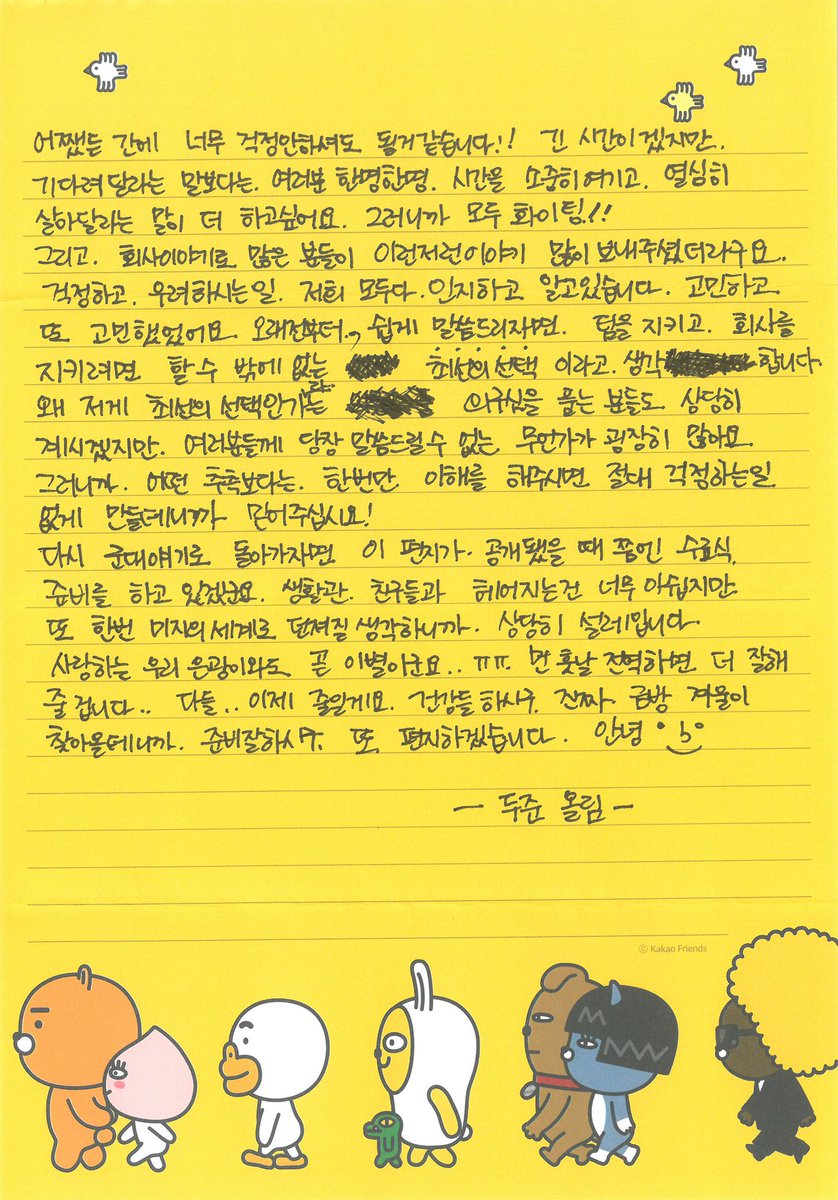 어쨌든 간에 너무 걱정안하셔도 될거같습니다!! 긴 시간이겠지만.
기다려달라는 말보다는. 여러분 한명한명. 시간을 소중히여기고. 열심히
살아달라는 말이 더 하고싶어요. 그러니까 모두 화이팅!!
그리고. 회사이야기로 많은 분들이 이런저런이야기 많이 보내주셨더라구요.
걱정하고. 우려하시는일. 저희 모두다. 인지하고 알고있습니다. 고민하고.
또 고민했었어요. 오래전부터., 쉽게 말씀드리자면. 팀을 지키고. 회사를
지키려면 할 수 밖에 없는 최선의 선택 이라고. 생각 합니다.
왜 저게 최선의 선택인가라는 의구심을 품는 분들도 상당히
계시겠지만. 여러분들께 당장 말씀드릴수 없는 무언가가 굉장히 많아요.
그러니까. 어떤 추측보다는. 한번만 이해를 해주시면 절대 걱정하는일
없게 만들테니까 믿어주십시요!
다시 군대얘기로 돌아가자면 이 편지가. 공개됐을 때 쯤엔 수료식,
준비를 하고 있겠군요. 생활관. 친구들과 헤어지는건 너무 아쉽지만.
또 한번 미지의 세계로 던져질 생각하니까. 상당히 설레입니다.
사랑하는 우리 은광이와도 곧 이별이군요.. ㅠㅠ. 먼 훗날 전역하면 더 잘해
줄 겁니다.. 다들.. 이제 줄일게요. 건강들 하시구. 진짜. 금방 겨울이
찾아올테니까. 준비잘하시구. 또, 편지하겠습니다. 안녕
- 두준 올림 -
© Kakao Friends